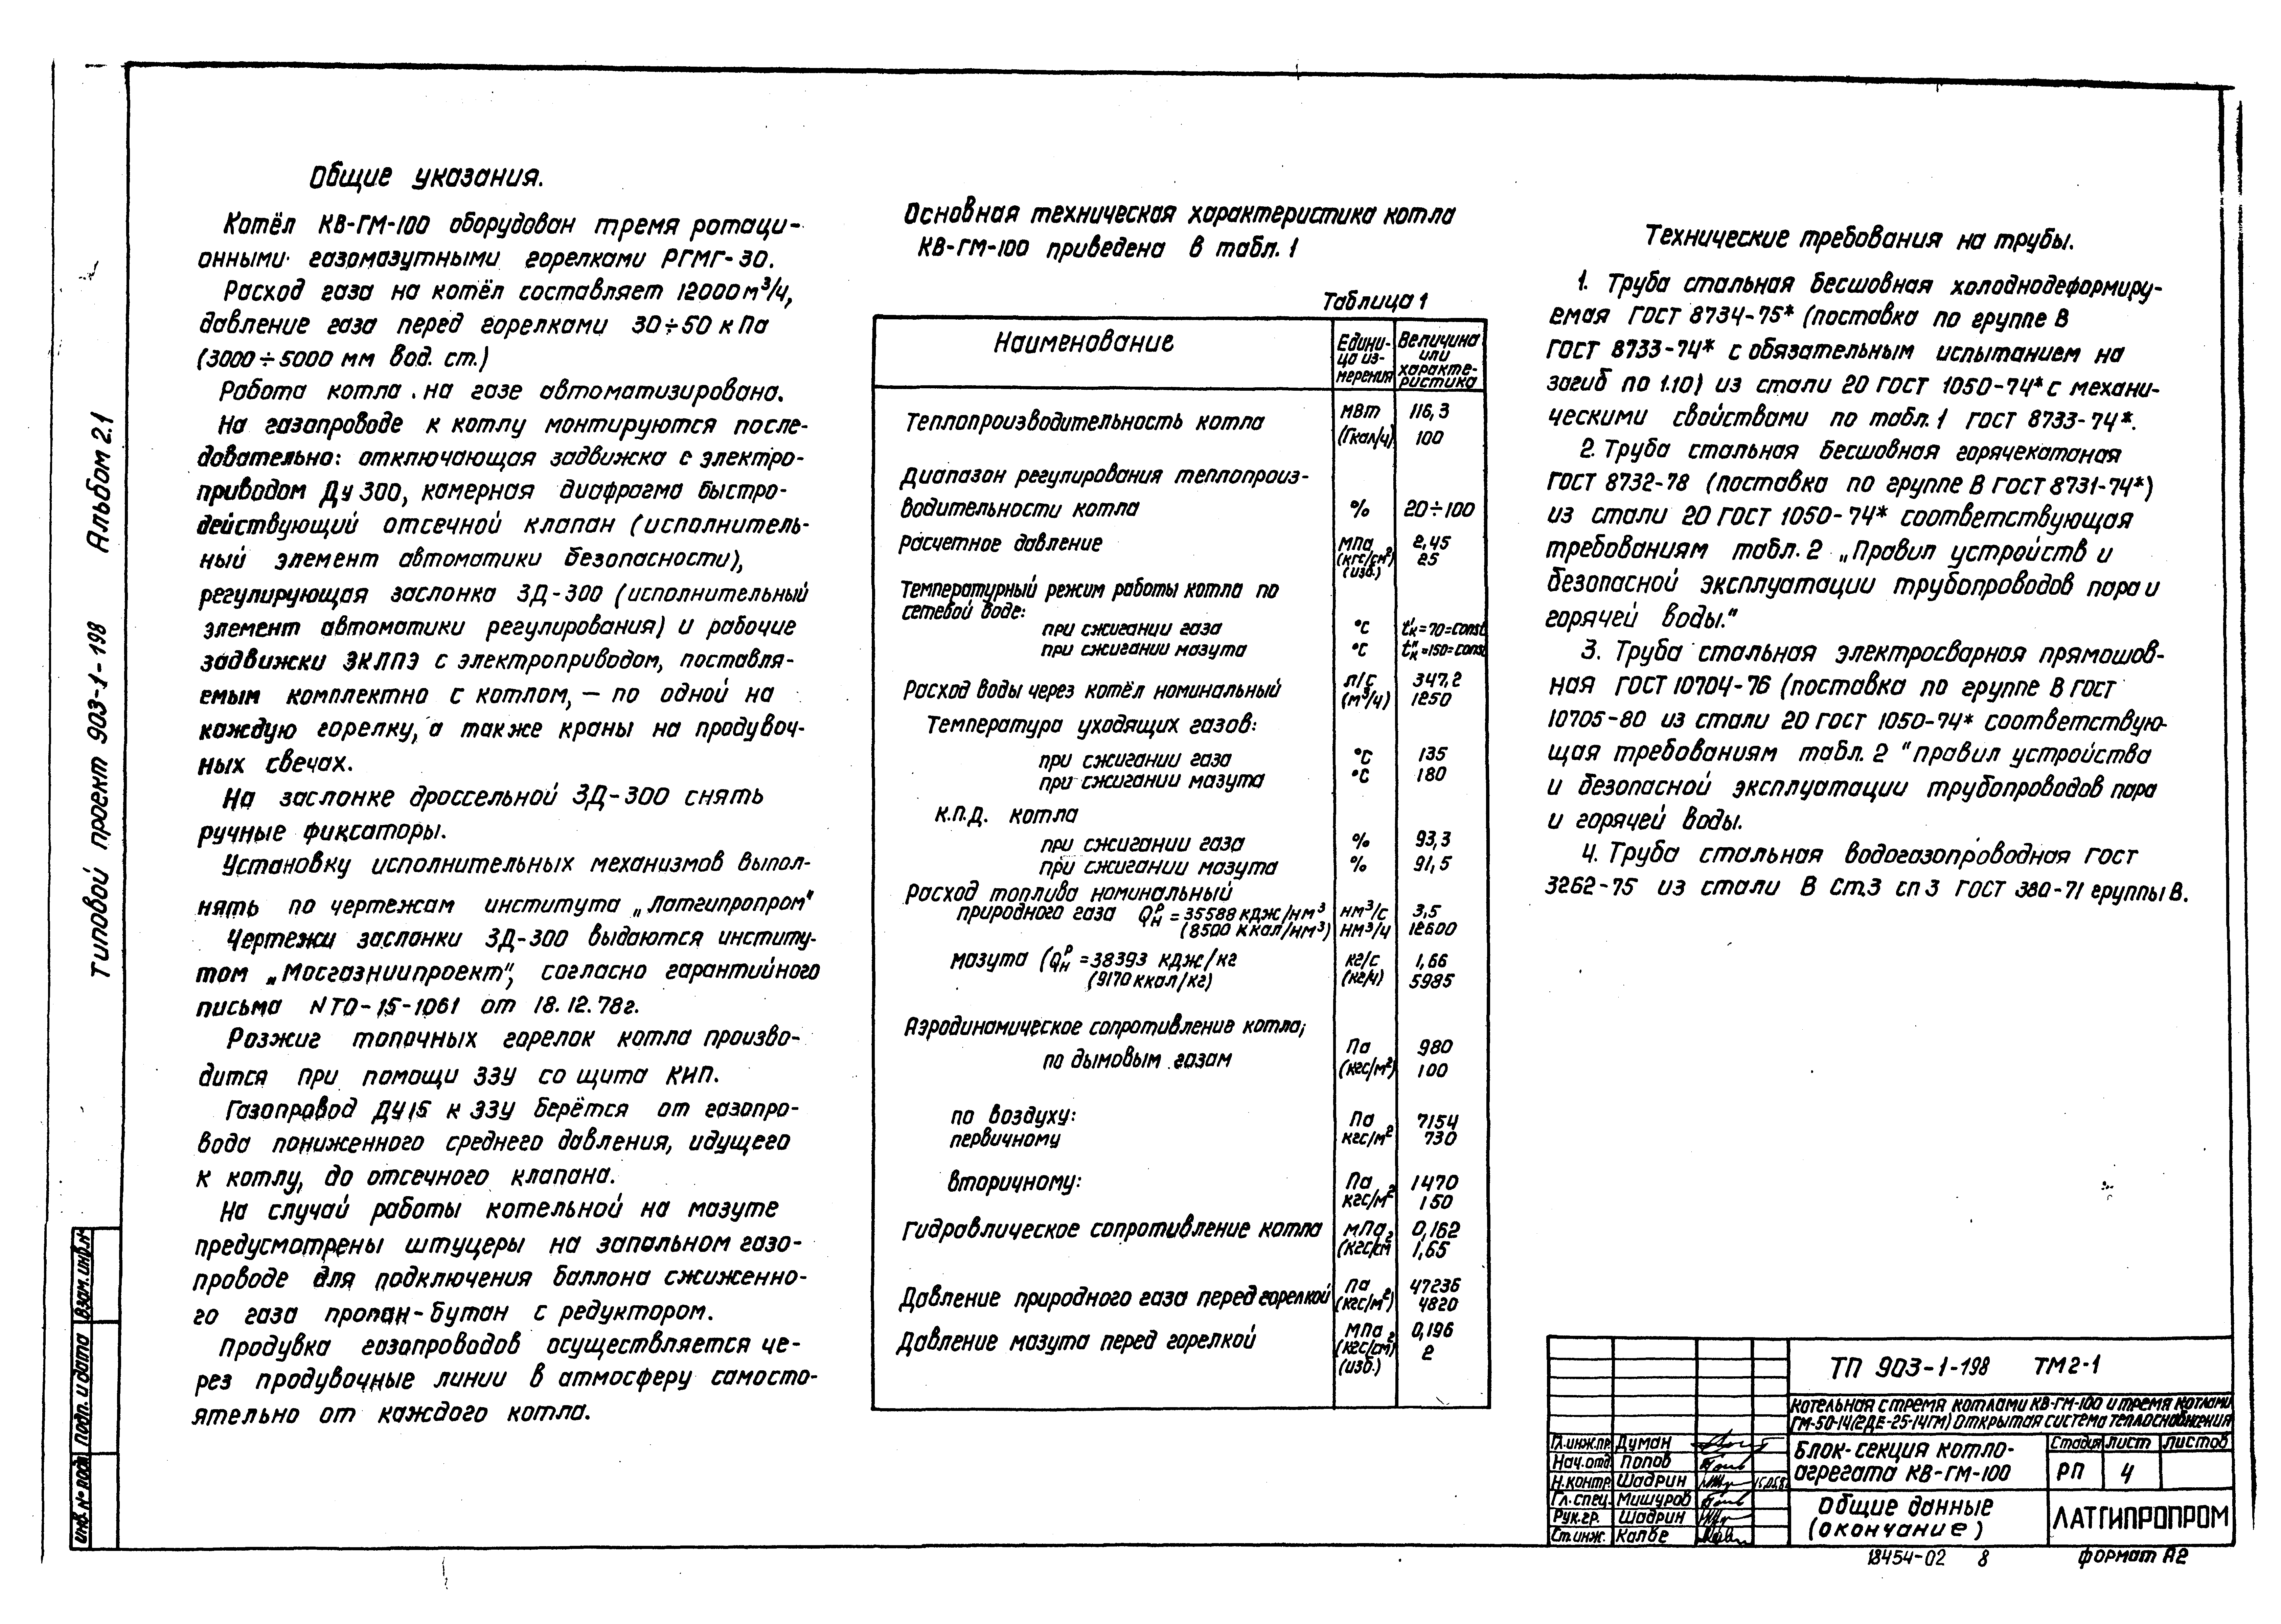 Общие указания.
Котёл КВ-ГМ-100 оборудован тремя ротаци-
онными газомазутными горелками РГМГ-30.
Расход газа на котёл составляет 12000 м³/ч,
давление газа перед горелками 30÷50 кПа
(3000÷5000 мм вод. ст.)
Работа котла на газе автоматизирована.
На газопроводе к котлу монтируются после-
довательно: отключающая задвижка с электро-
приводом Ду 300, камерная диафрагма быстро-
действующий отсечной клапан (исполнитель-
ный элемент автоматики безопасности),
регулирующая заслонка ЗД-300 (исполнительный
элемент автоматики регулирования) и рабочие
задвижки ЭКЛПЭ с электроприводом, поставля-
емым комплектно с котлом, — по одной на
каждую горелку, а также краны на продувоч-
ных свечах.
На заслонке дроссельной ЗД-300 снять
ручные фиксаторы.
Установку исполнительных механизмов выпол-
нять по чертежам института „Латгипропром"
Чертежи заслонки ЗД-300 выдаются институ-
том „Мосгазниипроект", согласно гарантийного
письма N ТО-15-1061 от 18.12.78г.
Розжиг топочных горелок котла произво-
дится при помощи ЗЗУ со щита КИП.
Газопровод ДУ15 к ЗЗУ берётся от газопро-
вода пониженного среднего давления, идущего
к котлу, до отсечного клапана.
На случай работы котельной на мазуте
предусмотрены штуцеры на запальном газо-
проводе для подключения баллона сжиженно-
го газа пропан-бутан с редуктором.
Продувка газопроводов осуществляется че-
рез продувочные линии в атмосферу самосто-
ятельно от каждого котла.
Основная техническая характеристика котла
КВ-ГМ-100 приведена в табл. 1
Таблица 1
Наименование Едини-ца из-мерения Величина или характе-ристика
Теплопроизводительность котла МВт 116,3
(Гкал/ч) 100
Диапазон регулирования теплопроиз-
водительности котла % 20÷100
Расчетное давление МПа 2,45
(кгс/см²) 25
(изб.)
Температурный режим работы котла по
сетевой воде:
при сжигании газа °С t'к=70=const
при сжигании мазута °С t"к=150=const
Расход воды через котёл номинальный л/с 347,2
(м³/ч) 1250
Температура уходящих газов:
при сжигании газа °С 135
при сжигании мазута °С 180
К.П.Д. котла
при сжигании газа % 93,3
при сжигании мазута % 91,5
Расход топлива номинальный
природного газа Qнᴾ = 35588 кДж/нм³ нм³/с 3,5
(8500 ккал/нм³) нм³/ч 12600
мазута (Qнᴾ = 38393 кДж/кг кг/с 1,66
(9170 ккал/кг) (кг/ч) 5985
Аэродинамическое сопротивление котла;
по дымовым газам Па 980
(кгс/м²) 100
по воздуху: Па 7154
первичному кгс/м² 730
вторичному: Па 1470
кгс/м² 150
Гидравлическое сопротивление котла МПа 0,162
(кгс/см² 1,65
Давление природного газа перед горелкой Па 47236
(кгс/м²) 4820
Давление мазута перед горелкой МПа 0,196
(кгс/см²) 2
(изб.)
Технические требования на трубы.
1. Труба стальная бесшовная холоднодеформиру-
емая ГОСТ 8734-75* (поставка по группе В
ГОСТ 8733-74* с обязательным испытанием на
загиб по 1.10) из стали 20 ГОСТ 1050-74* с механи-
ческими свойствами по табл. 1 ГОСТ 8733-74*.
2. Труба стальная бесшовная горячекатаная
ГОСТ 8732-78 (поставка по группе В ГОСТ 8731-74*)
из стали 20 ГОСТ 1050-74* соответствующая
требованиям табл. 2 „Правил устройств и
безопасной эксплуатации трубопроводов пара и
горячей воды."
3. Труба стальная электросварная прямошов-
ная ГОСТ 10704-76 (поставка по группе В ГОСТ
10705-80 из стали 20 ГОСТ 1050-74* соответствую-
щая требованиям табл. 2 "правил устройства
и безопасной эксплуатации трубопроводов пара
и горячей воды.
4. Труба стальная водогазопроводная ГОСТ
3262-75 из стали В Ст.3 сп 3 ГОСТ 380-71 группы В.
Типовой проект 903-1-198 Альбом 2.1
Взам. инв. №
Подп. и дата
Инв. № подл.
ТП 903-1-198 ТМ2-1
Котельная с тремя котлами КВ-ГМ-100 и тремя котлами
ГМ-50-14(2ДЕ-25-14ГМ) открытая система теплоснабжения
Гл.инж.пр. Думан
Нач.отд Попов
Н.контр. Шадрин
Гл.спец. Мишуров
Рук.гр. Шадрин
Ст.инж. Калве
Блок-секция котло-
агрегата КВ-ГМ-100
Стадия Лист Листов
РП 4
Общие данные
(окончание)
ЛАТГИПРОПРОМ
18454-02 8
формат А2